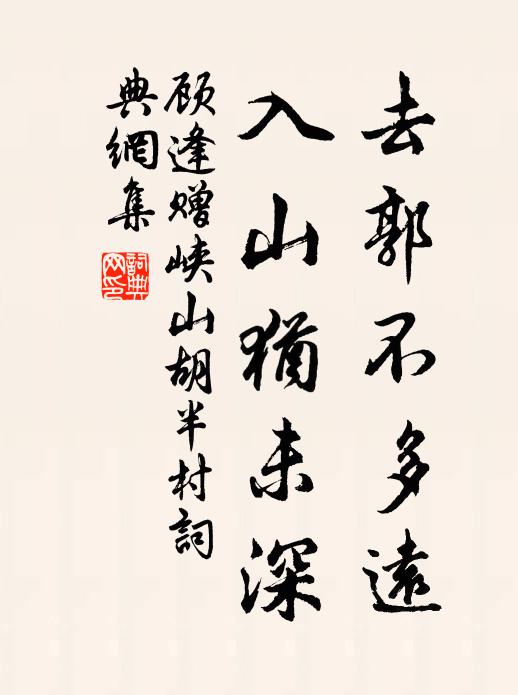 去郭不多遠
入山猶未深
顾逢赠峡山胡半村詞
典網集
詞典网印